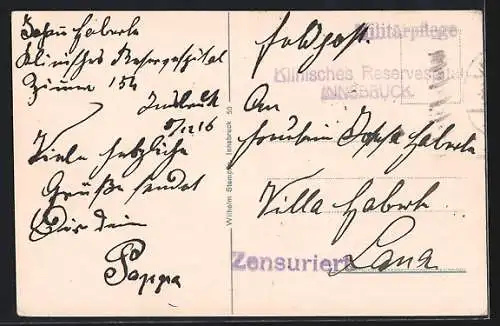 Johann Haberle
Klinisches Reservespital
Zimmer 154
Innsbruck
5/12 16
Viele herzliche
Grüße sendet
Dir dein
Poppa
Wilhelm Stempfle, Innsbruck 50
Militärpflege
Feldpost.
Klinisches Reservespital
INNSBRUCK
An
Fräulein Haberle
Villa Haberle
Lana
Zensuriert